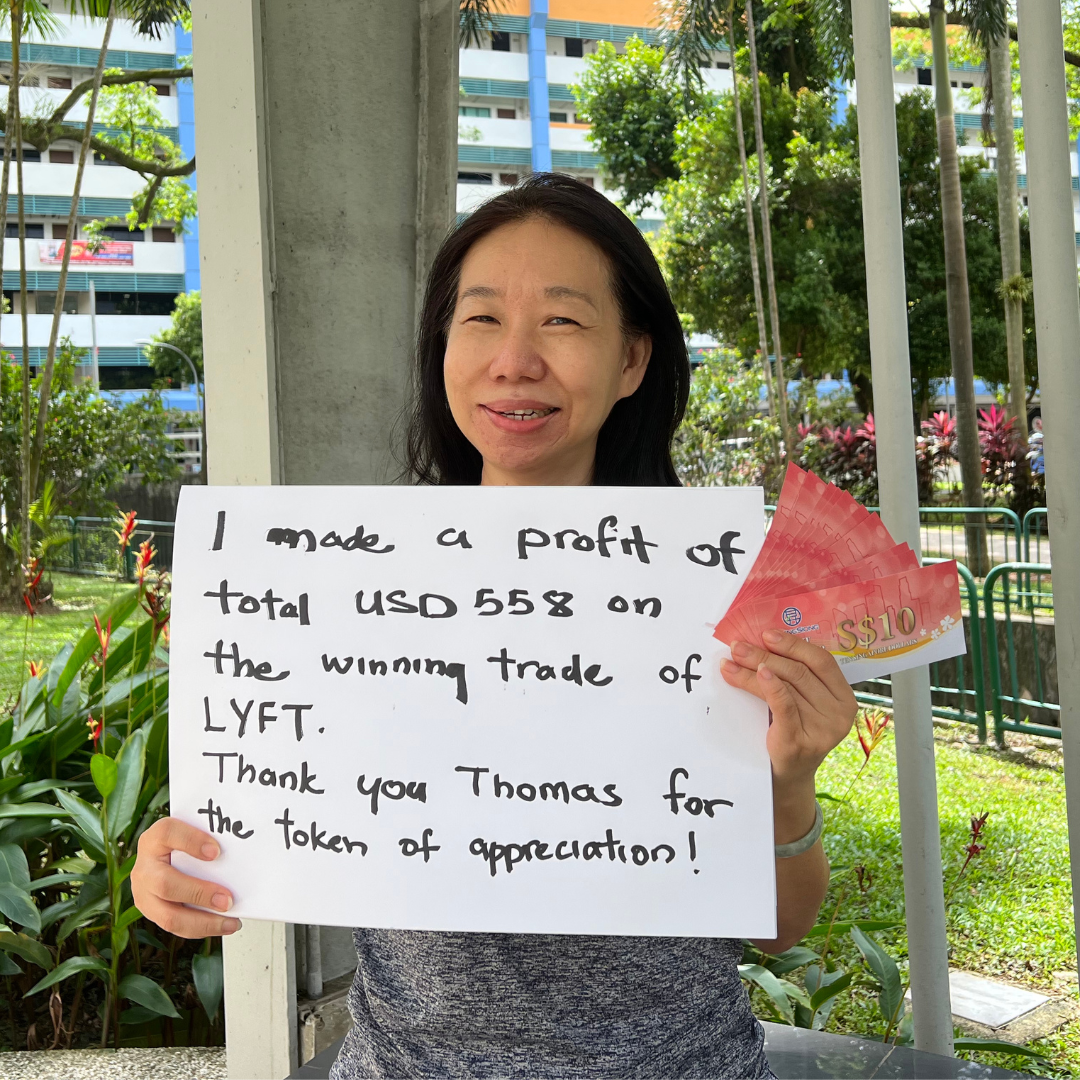 I made a profit of
total USD 558 on
the winning trade of
LYFT.
Thank you Thomas for
the token of appreciation!
S$10